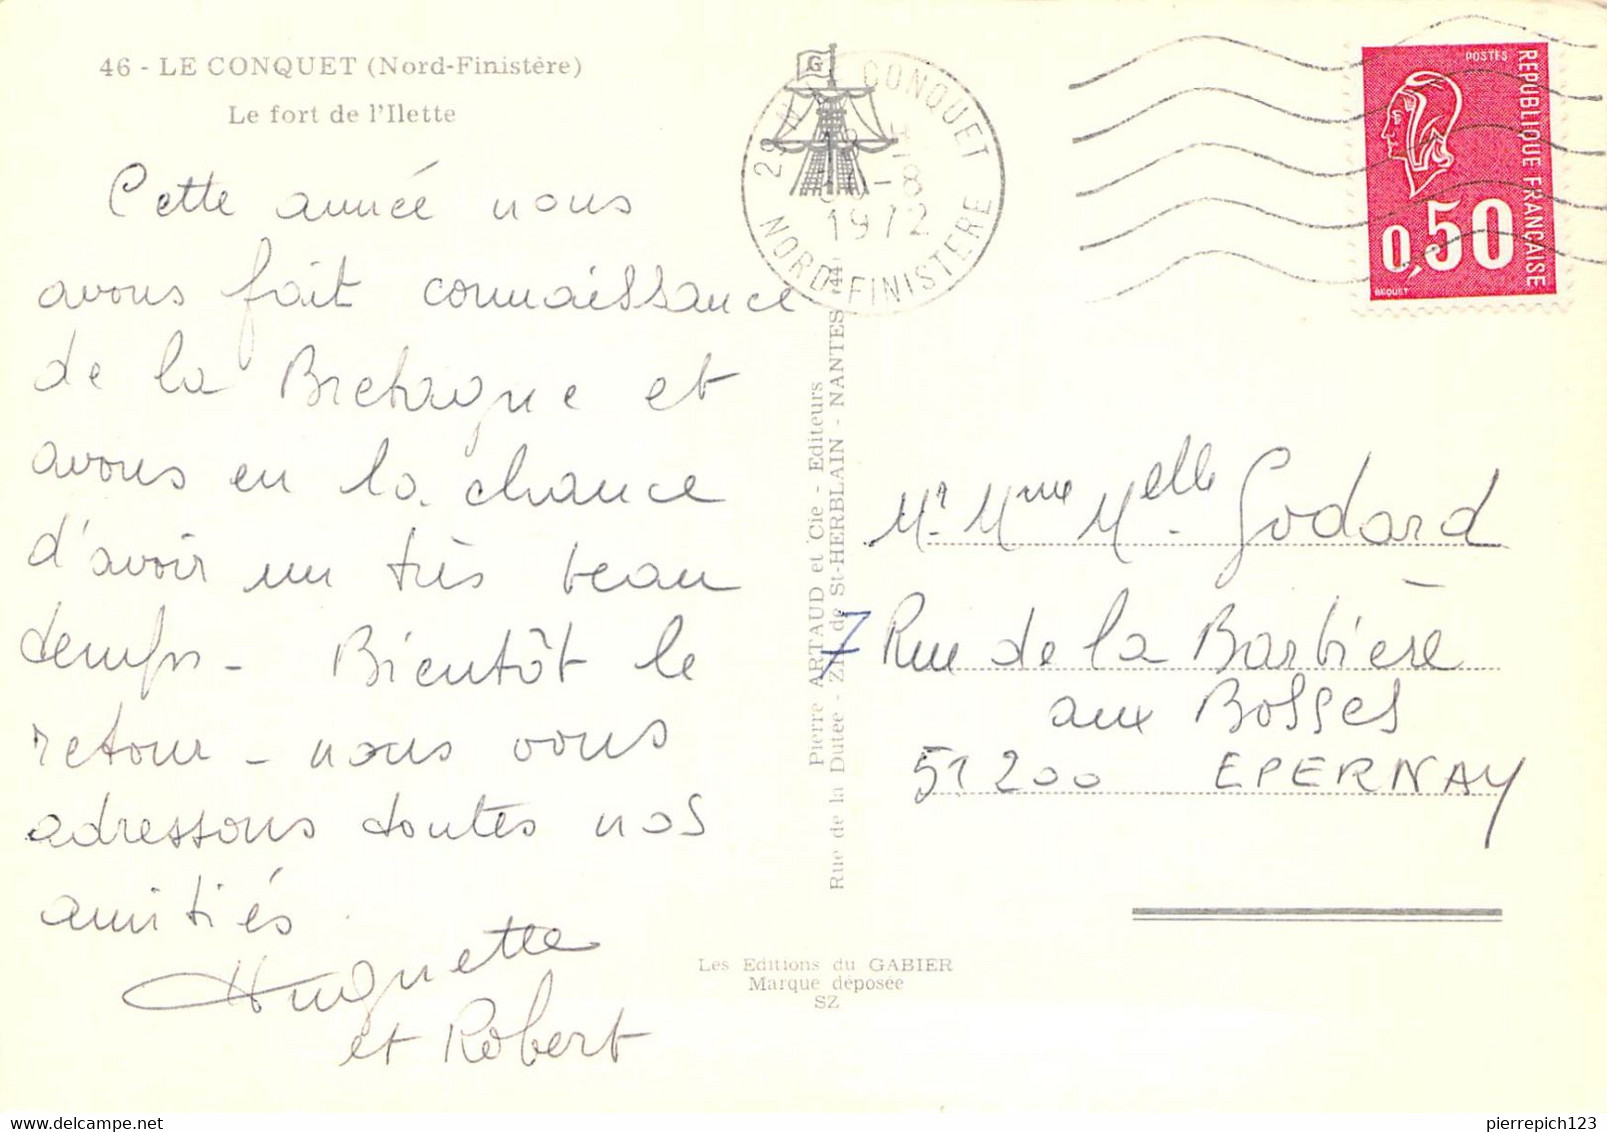 46 - LE CONQUET (Nord-Finistère)
Le fort de l'Ilette
Cette année nous
avons fait connaissance
de la Bretagne et
avons eu la chance
d'avoir un très beau
temps - Bientôt le
retour - nous vous
adressons toutes nos
amitiés
Huguette
et Robert
G
CONQUET
-8
1972
NORD-FINISTERE
POSTES
REPUBLIQUE FRANCAISE
0,50
BEQUET
Pierre ARTAUD et Cie - Editeurs
Rue de la Dutée - Z.I. de St-HERBLAIN - NANTES 44
Mr. Mme Melle Godard
7 Rue de la Barbière
aux Bosses
51200 EPERNAY
Les Editions du GABIER
Marque déposée
SZ
pierrepich123